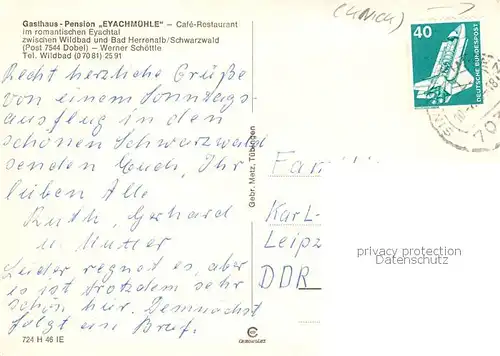 Gasthaus-Pension „EYACHMÜHLE" – Café-Restaurant
im romantischen Eyachtal
zwischen Wildbad und Bad Herrenalb/Schwarzwald
(Post 7544 Dobel) – Werner Schöttle
Tel. Wildbad (0 70 81) 25 91
Recht herzliche Grüße
von einem Sonntags-
ausflug in den
schönen Schwarzwald
senden Euch, Ihr
lieben Alle
Ruth, Gerhard
u. Mutter
Leider regnet es, aber
es ist trotzdem sehr
schön hier. Demnächst
folgt ein Brief.
724 H 46 IE
Gebr. Metz, Tübingen
40
DEUTSCHE BUNDESPOST
Fam
Karl-
Leipz
DDR
privacy protection
Datenschutz